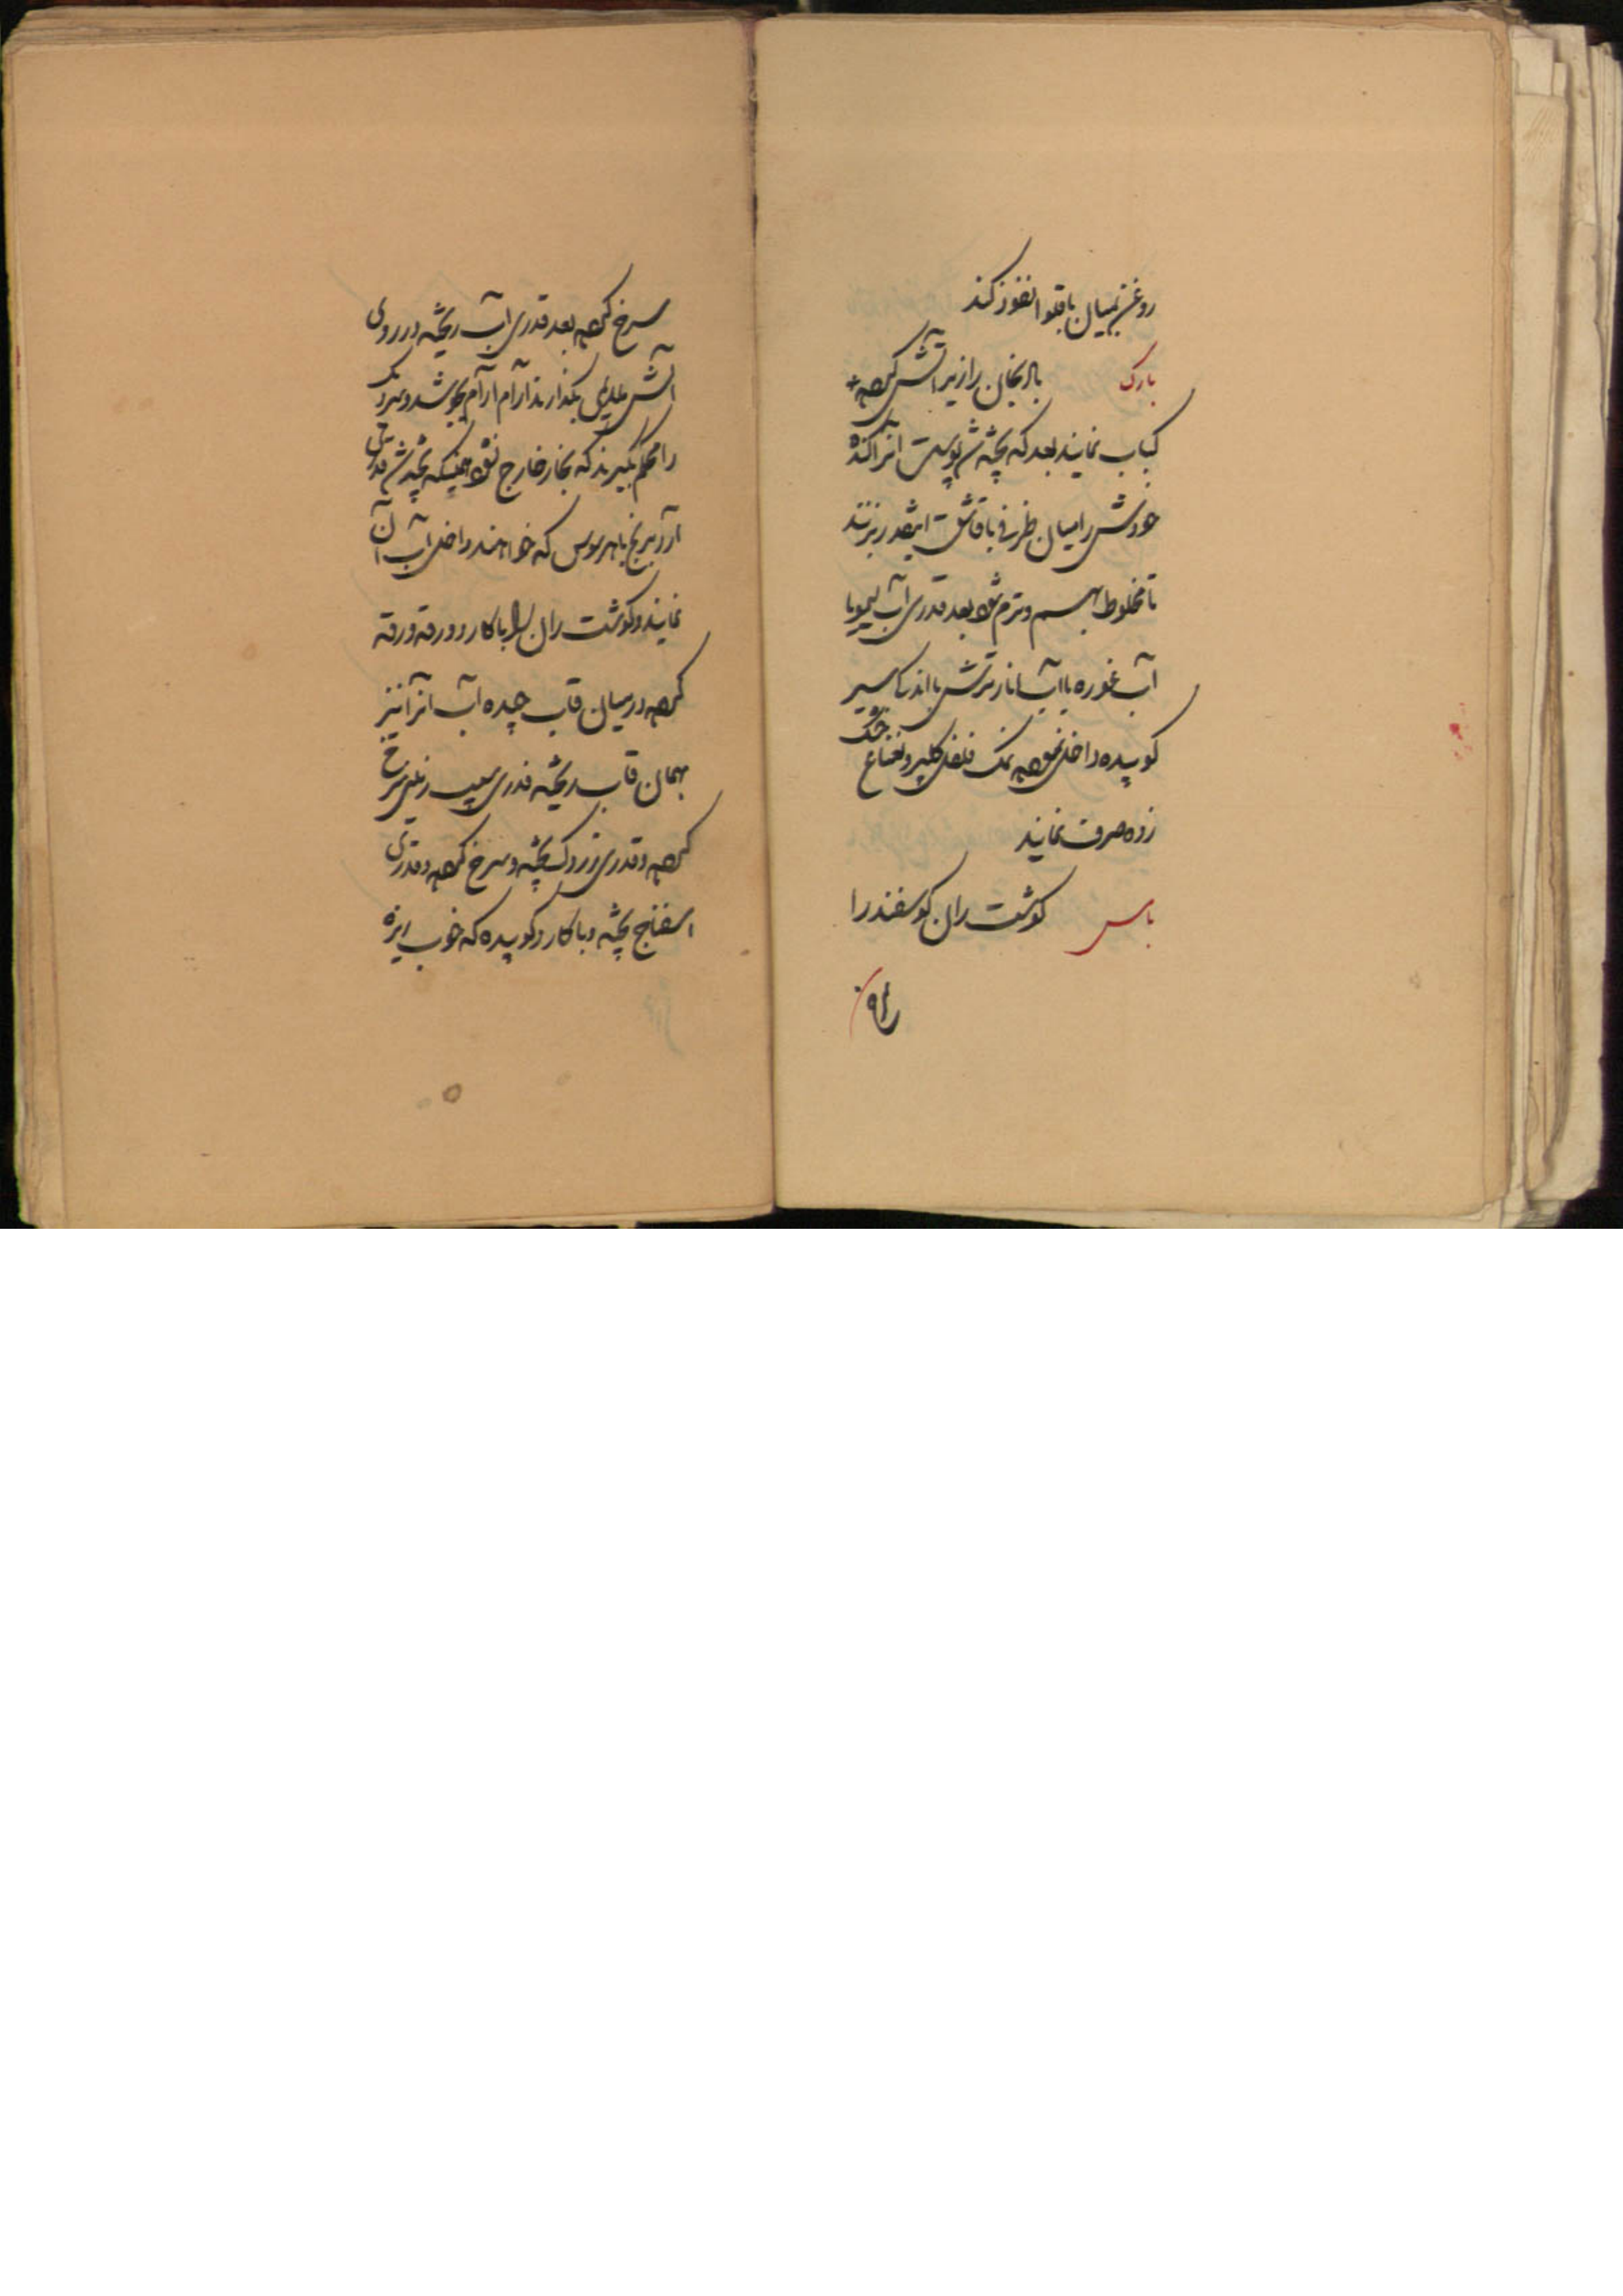 روغن بمیان باقلوا نفوذ کند
بارک بادنجان را زیر آتش کرده
کباب نمایند بعد که پخته شد پوست آنرا کنده
خودش را میان ظرفی با قاشق اینقدر بزنند
تا مخلوط بهم و نرم شود بعد قدری آب لیمو یا
آب غوره یا آب انار ترش با اندک سیر
کوبیده داخل نموده نمک فلفل گلپر و نعناع خشک
زده صرف نمایند
باس گوشت ران گوسفند را
سرخ کرده بعد قدری آب ریخته در روی
آتش ملایم بگذارند آرام آرام بجوشد و سر دیگ
را محکم بگیرند که بخار خارج نشود همینکه پخته شد قدری
آرد برنج یا هر سوس که خواهند داخل آب آن
نمایند و گوشت ران را با کارد ورقه ورقه
کرده در میان قاب چیده آب آنرا نیز
بهمان قاب ریخته قدری سیب زمینی سرخ
کرده و قدری زردک پخته و سرخ کرده و قدری
اسفناج پخته و با کارد کوبیده که خوب ریزه